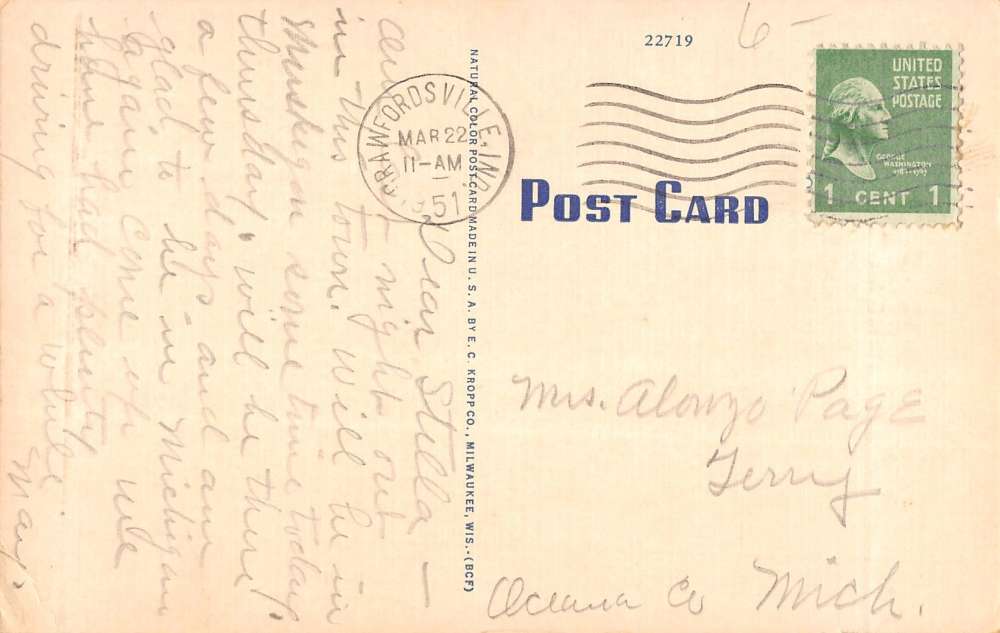 22719
6-
UNITED
STATES
POSTAGE
GEORGE
WASHINGTON
1789-1797
1 CENT 1
CRAWFORDSVILLE, IND.
MAR 22
11-AM
1951
POST CARD
NATURAL COLOR POST CARD MADE IN U. S. A. BY E. C. KROPP CO., MILWAUKEE, WIS.-(BCF)
Dear Stella —
last night out
in this town. Will be in
Muskegon some time today
thursday, will be there
a few days and am
glad to be in Michigan
again. Come up
have had plenty
driving for a while
May.
Mrs. Alonzo Page
Ferry
Oceana Co Mich.